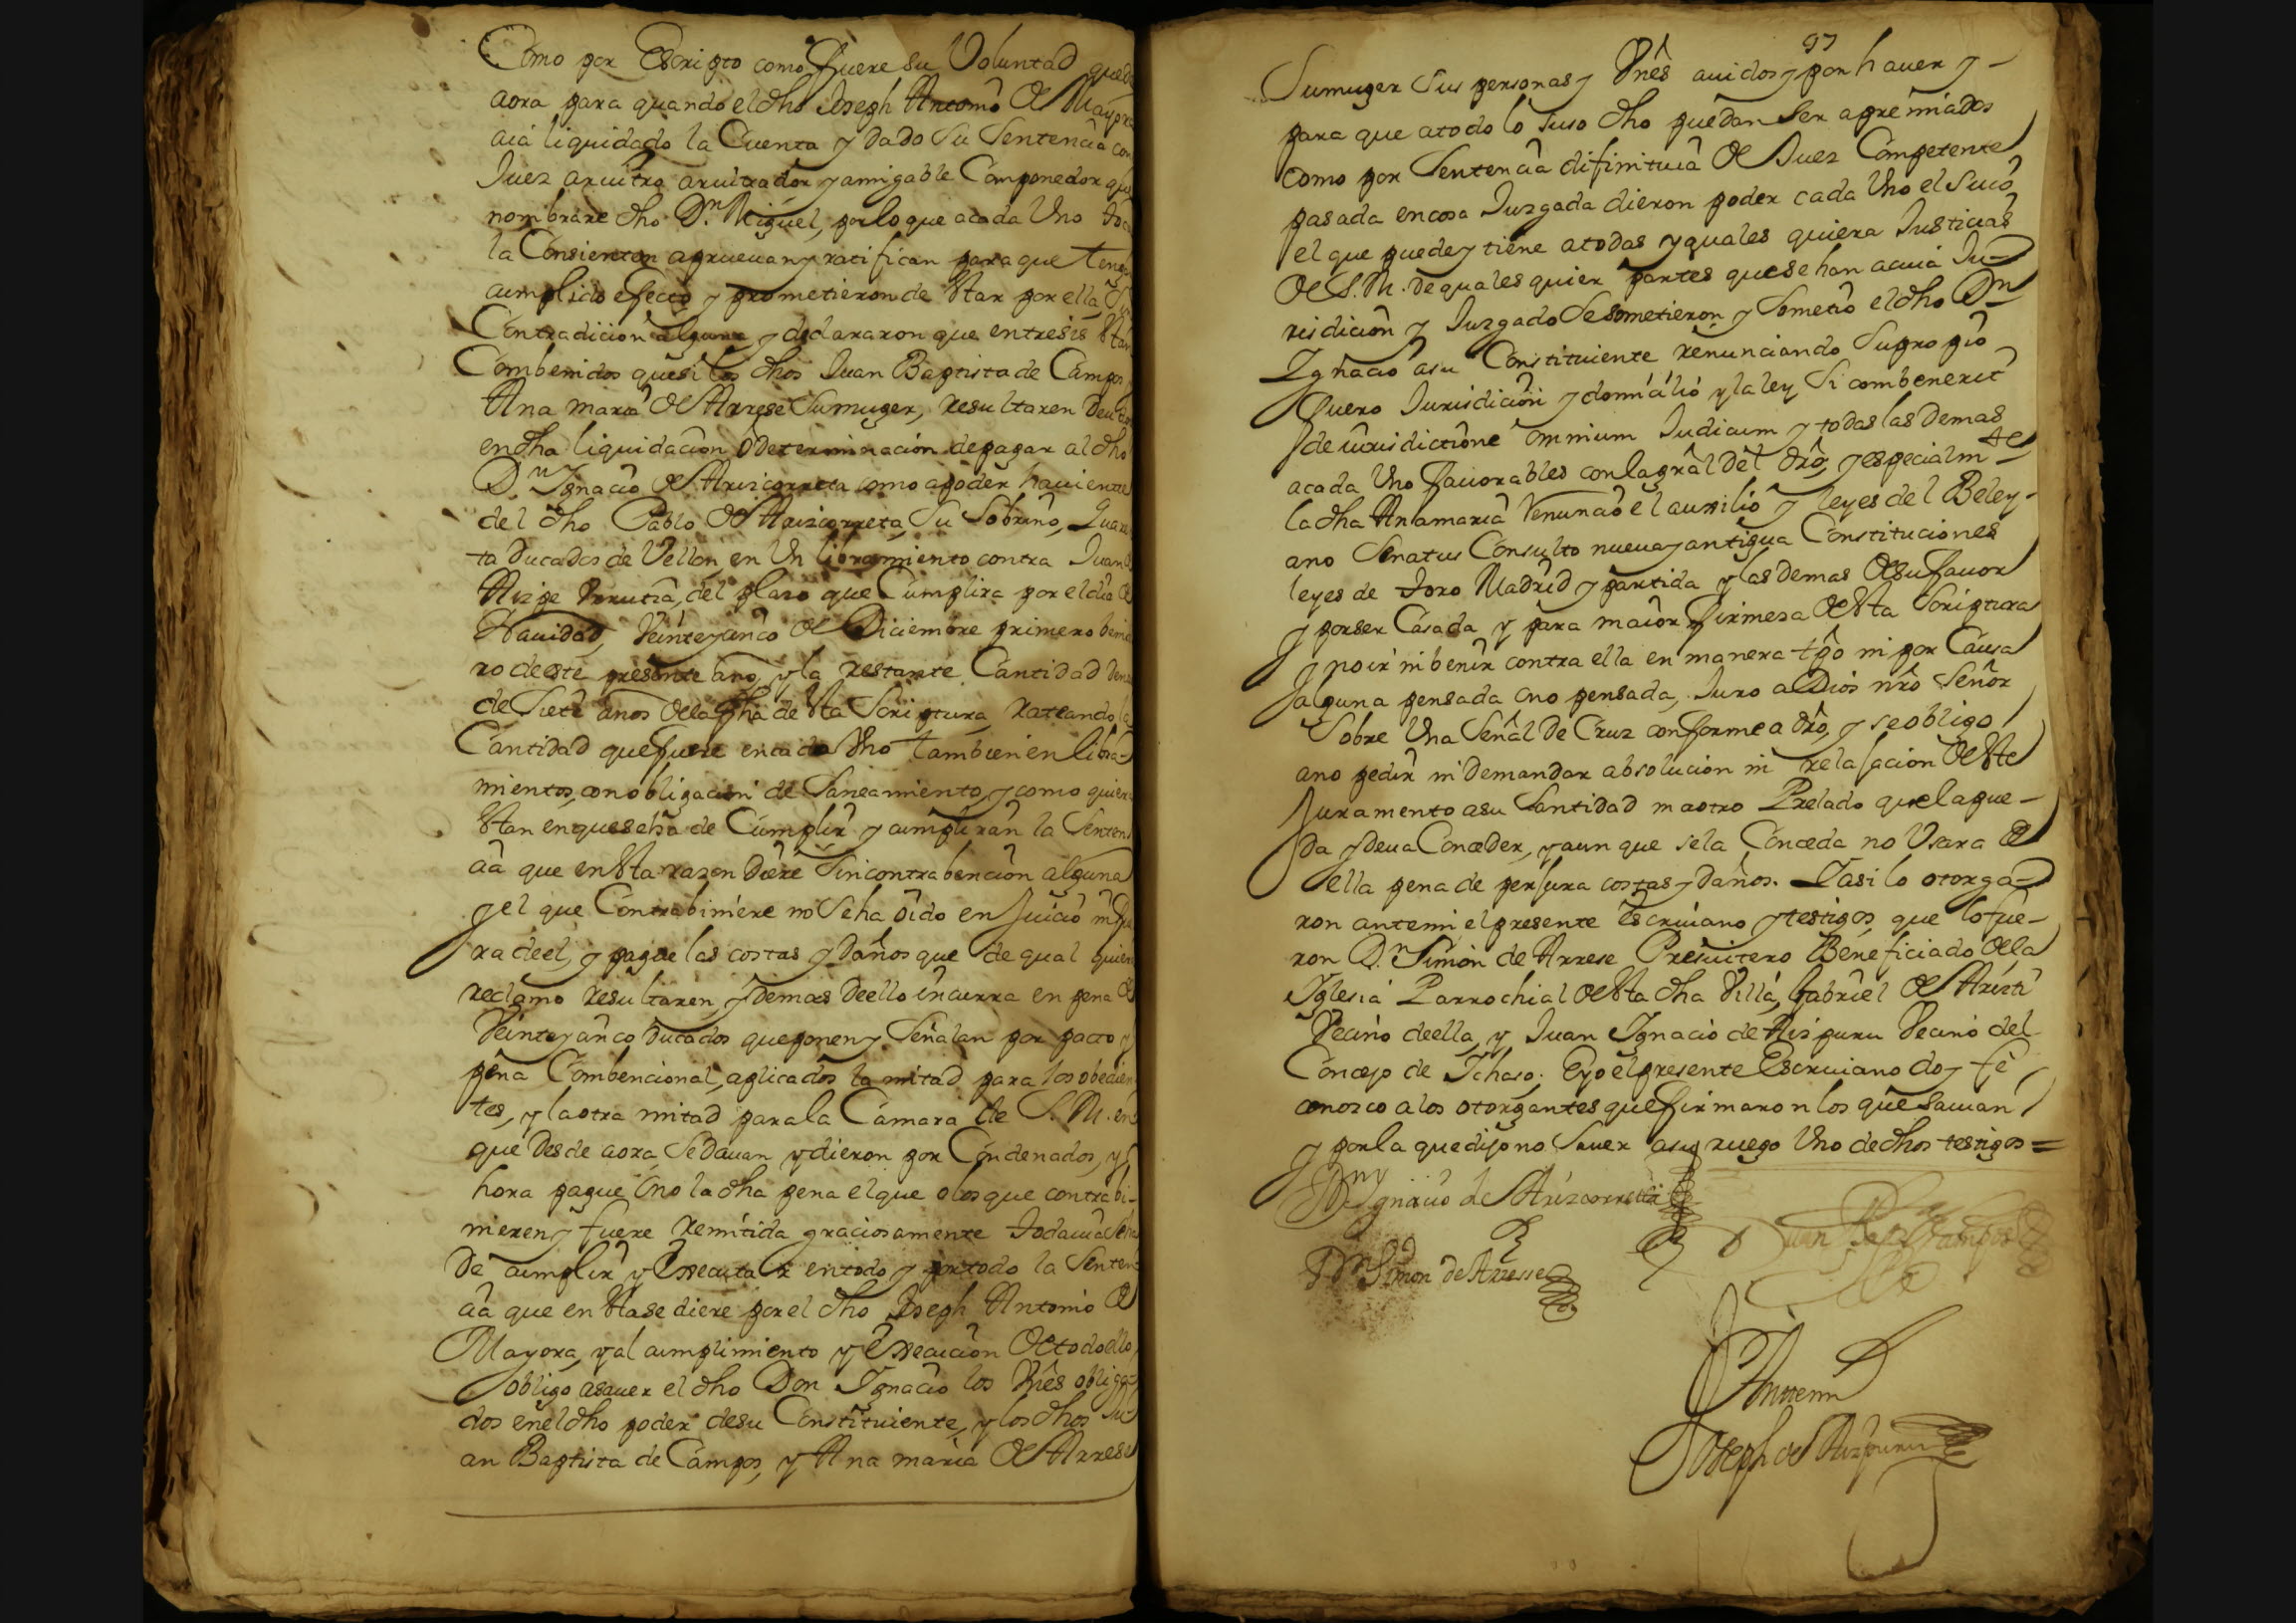 Como por Escripto como fuere su Voluntad quede
aora para quando el dho Joseph Antonio de Mayora
aia liquidado la Cuenta y dado su Sentencia con
Juez aruitro aruitrador y amigable Componedor que
nombrare dho Dn. Miguel, por lo que acada Uno toca
la Consienten aprueuan y ratifican para que tenga
cumplido efecto y prometieron de Star por ella Sin
Contradicion alguna y declararon que entresis Stan
Combenidos que si los dhos Juan Baptista de Campos y
Ana maria de Arrese Sumuger, resultaren Deudores
en dha liquidacion o determinacion de pagar al dho
Dn. Ignacio de Arizcorreta como apoder hauiente
del dho Pablo de Arizcorreta, Su Sobrino, Quaren
ta Ducados de Vellon, en Un libramiento contra Juan de
Aizpe Vrrutia, del plazo que Cumplira por el dia de
Nauidad, Veinteycinco de Diciembre primero benide
ro deeste presente año, y la restante Cantidad dentro
de Siete años dela fha de Sta Scriptura, rateando la
Cantidad que fuere encada Uno tambien en libra-
mientos, con obligacion de Saneamiento, y como quiera
Stan en que seha de Cumplir y cumpliran la Senten
cia que en Sta razon Diere Sin contrabencion alguna
y el que Contrabiniere no Seha oido en Juicio ni fue
ra deel, y pague las costas y Daños que de qual quier
reclamo resultaren, y demas Deello incurra en pena de
Veinteycinco Ducados que ponen y Señalan por pacto y
pena Combencional, aplicados la mitad para los obedien
tes, y la otra mitad para la Camara de S. M. en
que Desde aora Sedauan y dieron por Condenados, y
hora pague Ono la dha pena el que o los que contrabi-
nieren y fuere remitida graciosamente todauia Seha
De cumplir y Executar en todo y por todo la Senten
cia que en Sta se diere por el dho Joseph Antonio de
Mayora, y al cumplimiento y Execucion de todo ello,
obligo asauer el dho Don Ignacio los Vnes obliga-
dos en el dho poder desu Constituiente, y los dhos Ju-
an Baptista de Campos, y Ana maria de Arrese
97
Sumuger Sus personas y Vnes auidos y por hauer y -
para que atodo lo Suso dho puedan Ser apremiados
como por Sentencia difinitiua de Juez Competente
pasada encosa Juzgada dieron poder cada Uno el Suio
el que puede y tiene atodas y quales quiera Justicias
de S. M. de quales quier partes que se han acuia Ju-
risdicion y Juzgado Se sometieron y Sometio el dho Dn
Ignacio asu Constituiente renunciando Supropio
fuero Jurisdicion y domicilio y la ley Si combenerit
de iurisdictione omnium Judicum y todas las demas
acada Uno fauorables con la gral del dro, y especialmte
la dha Anamaria Renuncio el auxilio y leyes del Beley-
ano Senatus Consulto nueua y antigua Constituciones
leyes de Toro Madrid y partida y las demas de su fauor
y por ser Casada y para maior firmeza de Sta Scriptura
y no ir ni benir contra ella en manera tpo ni por Causa
alguna pensada ono pensada, Juro a Dios nro Señor
Sobre Una Señal De Cruz conforme a dro, y se obligo
ano pedir ni Demandar absolucion ni relajacion de Ste
Juramento asu Santidad ni aotro Prelado que la pue-
da y deua Conceder, y aun que sela Conceda no Usara de
ella pena de perjura costas y Daños. Y asi lo otorga-
ron antemi el presente Escriuano y testigos que lo fue-
ron Dn. Simon de Arrese Presuitero Beneficiado de la
Iglesia Parrochial de Sta dha Villa, Gabriel de Aristi
Vecino deella, y Juan Ignacio de Aispuru Vecino del
Concejo de Ichaso. E yo el presente Escriuano doy fe
conozco a los otorgantes que firmaron los que Sauian
y por la que dijo no Sauer asu ruego Uno de dhos testigos =
Dn Ygnacio de Arizcorreta
Juan Bapta Campos
Dn Simon de Arrese
Antemi
Joseph de Aizpuru